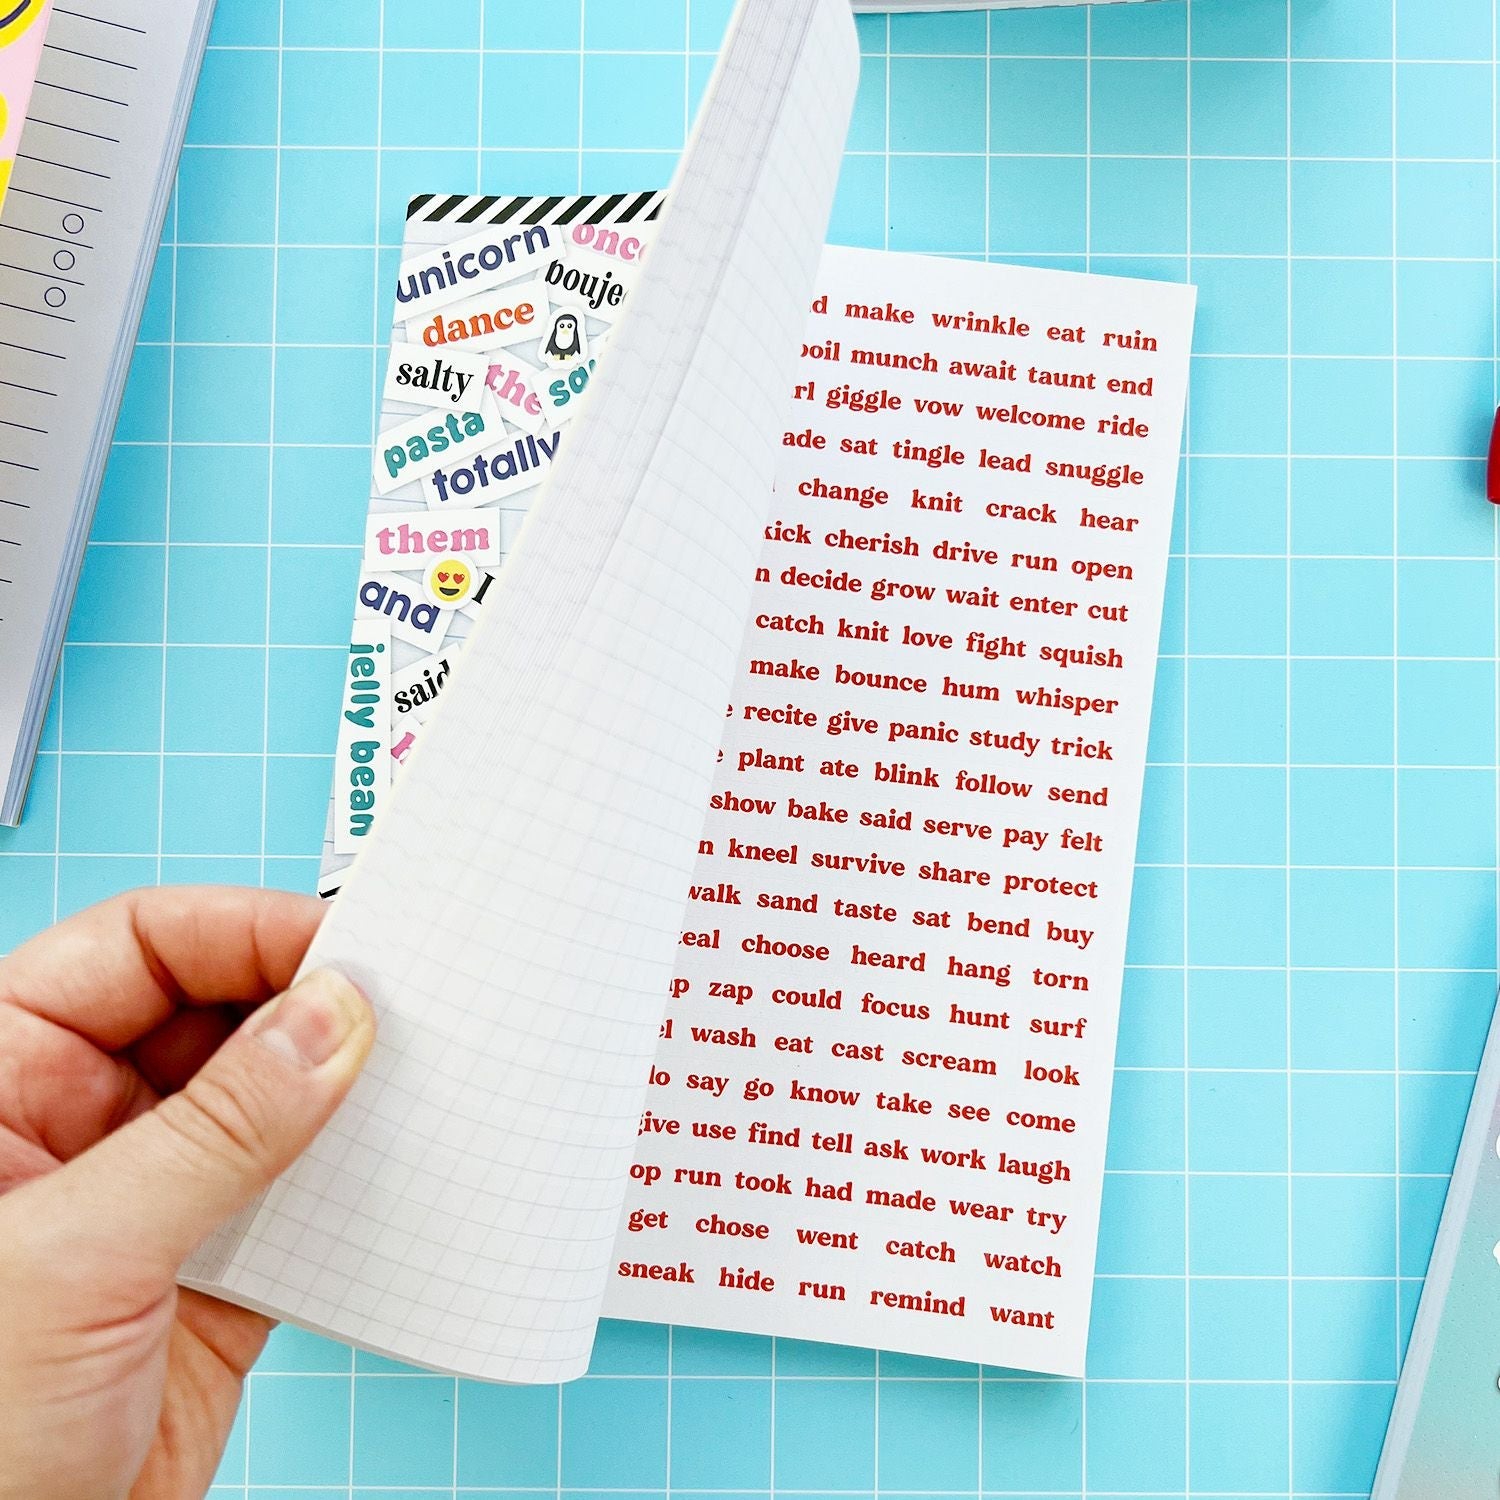 unicorn
dance
salty
pasta
totally
them
and
I
jelly bean
make wrinkle eat ruin
munch await taunt end
giggle vow welcome ride
sat tingle lead snuggle
change knit crack hear
kick cherish drive run open
decide grow wait enter cut
catch knit love fight squish
make bounce hum whisper
recite give panic study trick
plant ate blink follow send
show bake said serve pay felt
kneel survive share protect
walk sand taste sat bend buy
choose heard hang torn
zap could focus hunt surf
wash eat cast scream look
say go know take see come
give use find tell ask work laugh
run took had made wear try
get chose went catch watch
sneak hide run remind want